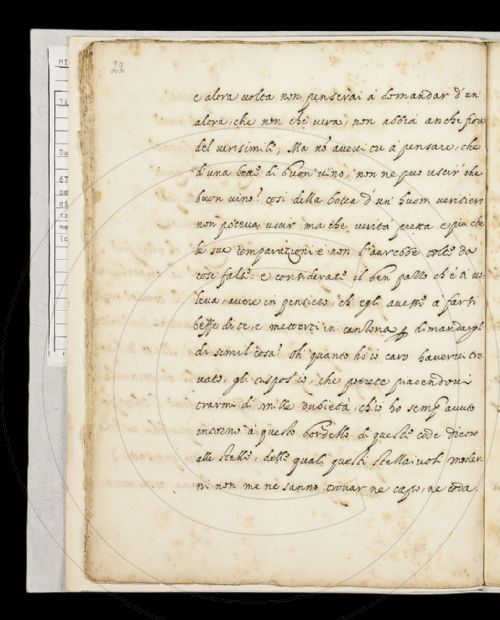 e altra volta non penserai à domandar d'un
altra, che non che vera, non abbia anche fiore
del verisimile; Ma nō avevi tu à pensare, che
d'una botte di buon vino, non ne può uscir che
buon vino? così della bocca d'un huom veritiero
non poteva uscir ma che verità pretta e più che
le sue comparationi e non l'aurebbe tolte da
cose false e considerate il ben pazzo ch'e ti vo-
leva, avere in pensiero, ch'egli avesse à farti
beffe di te, e metterti in canzona
di simil cosa? Oh quanto ho io caro havervi tro-
vato, gli risposi io, che potrete piacendovi
trarmi di mille dubietà, ch'io ho semp avuto
intorno à questo bordello di queste code dietro
alle stelle, delle quali questi stellaivoli moder-
ni non me ne sanno trovar ne capo, ne coda